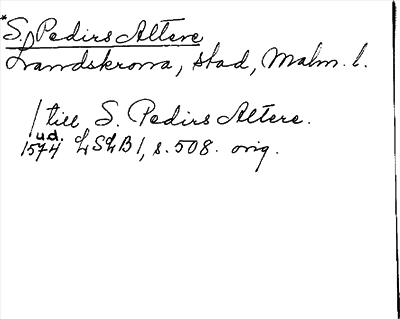 *S. Pedirs Altere
Landskrona, stad, Malm. l.
/ till S. Pedirs Altere.
ud.
1574 LSLB1, s. 508. orig.